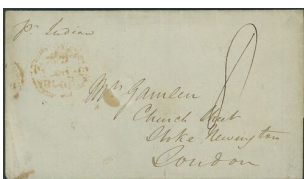 pr Indian
8
Mrs Gamsen
Church Street
Stoke Newington
London